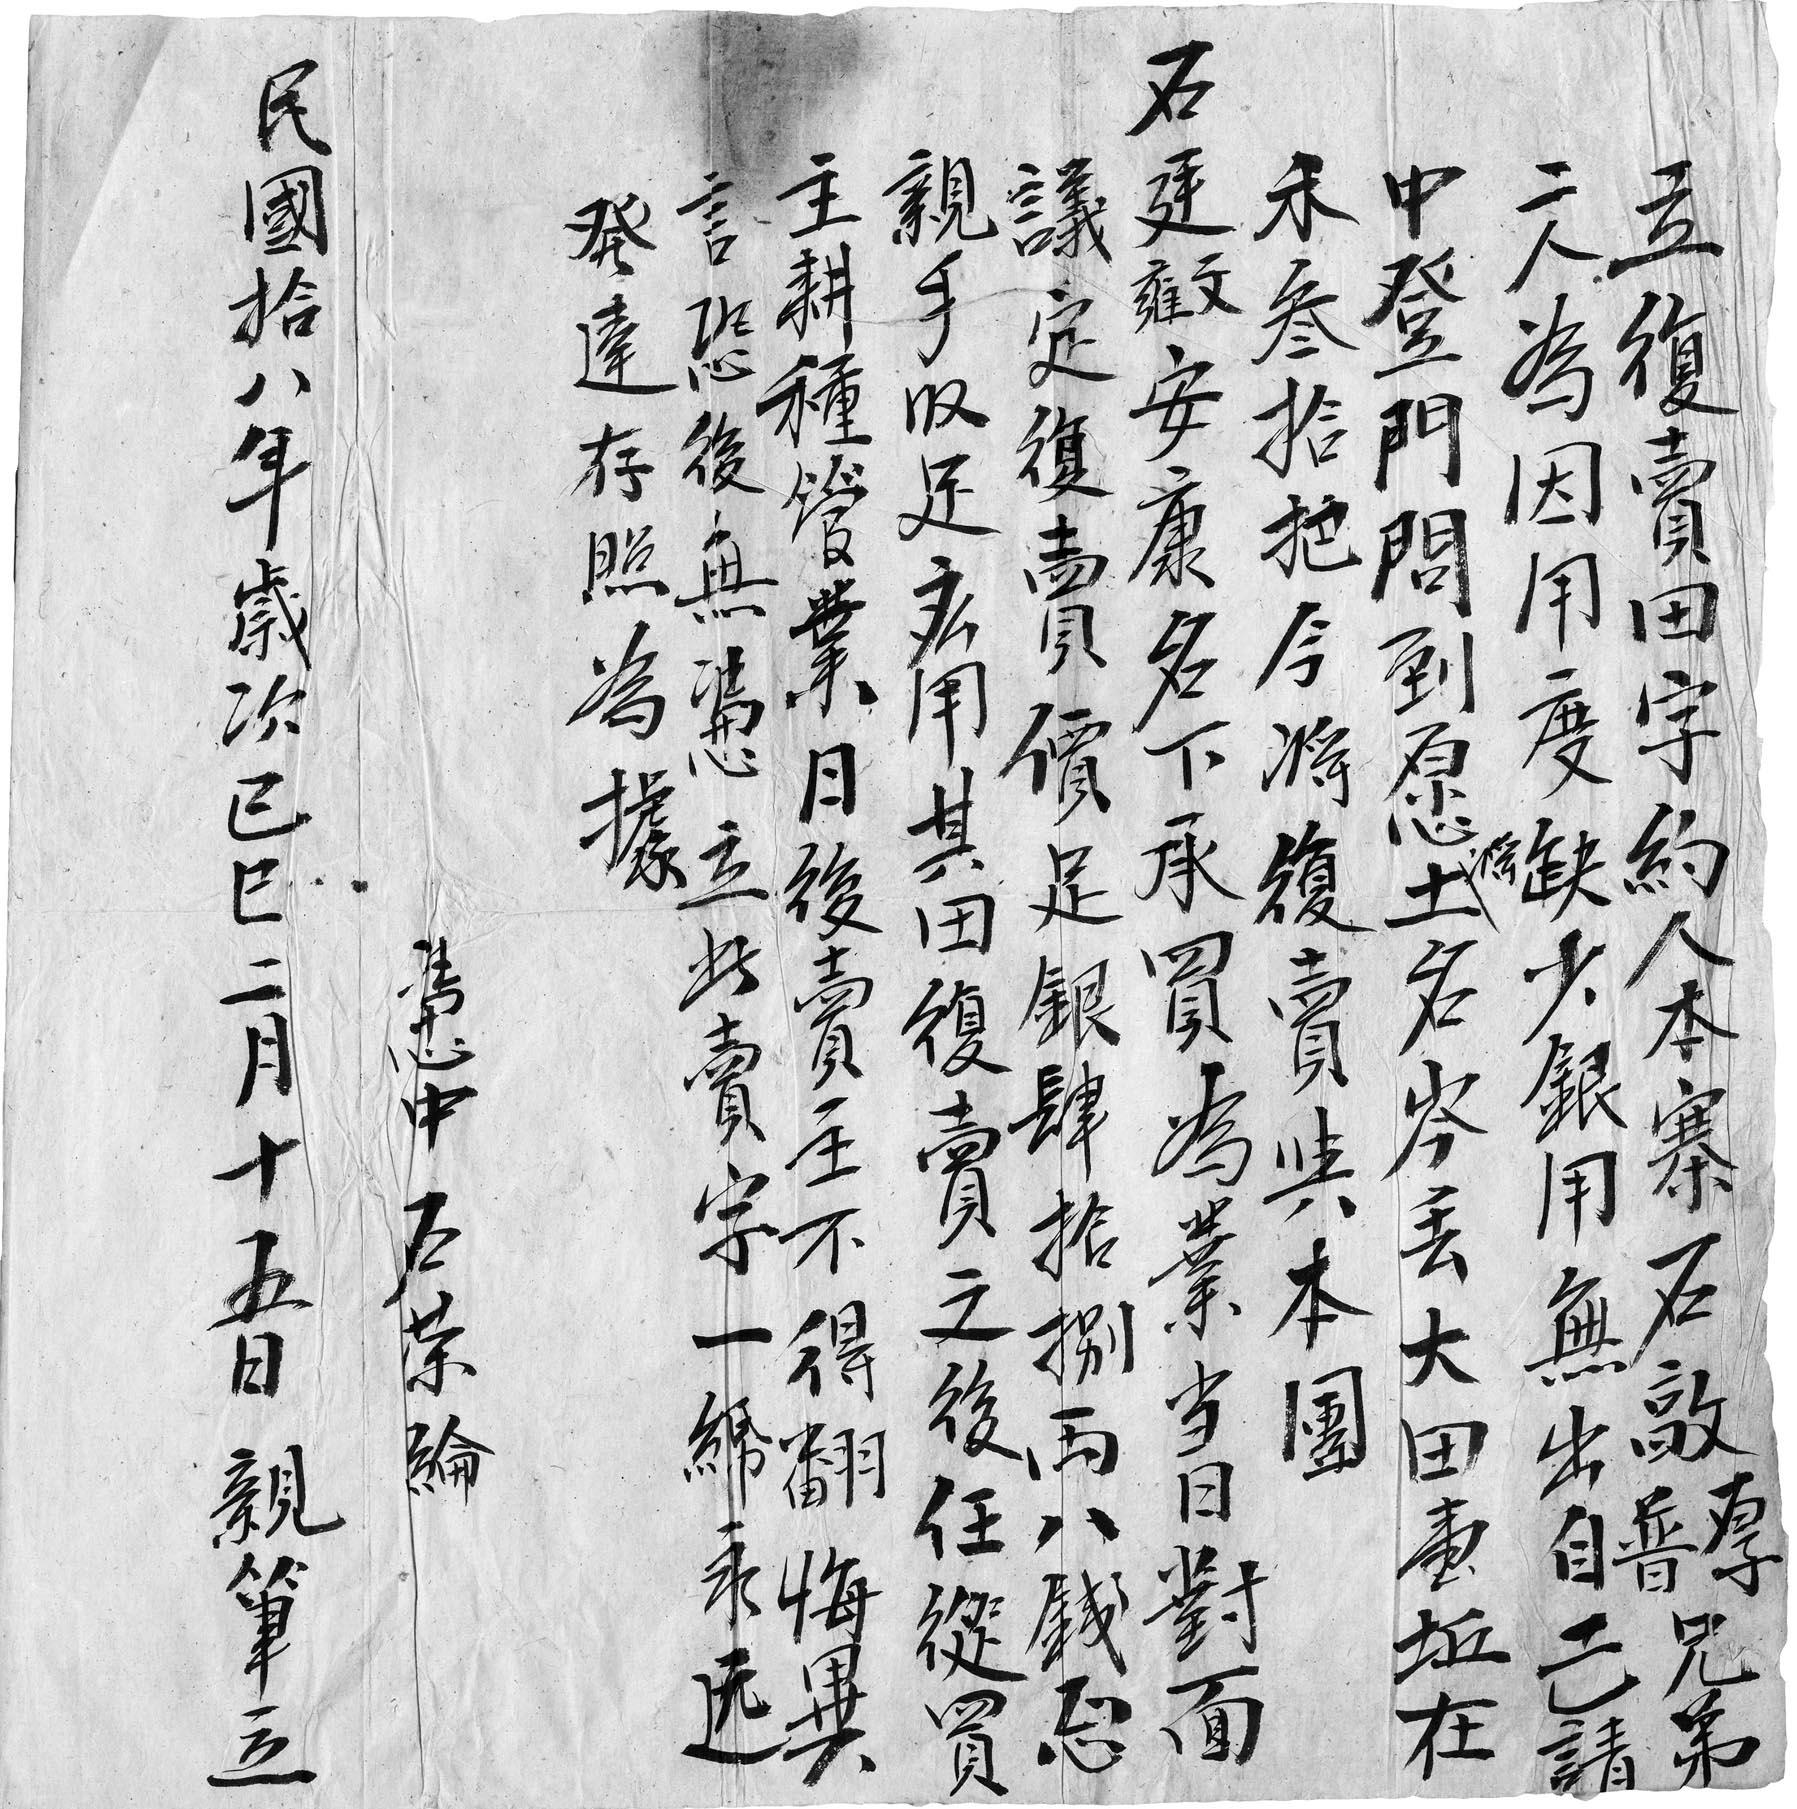 立復賣田字約人本寨石敵厚普兄弟
二人為因用度缺少銀用無出自己請
中登門問到愿將土名岑丟大田壹坵在
禾叁拾把今將復賣與本團
石廷文雍安康名下承買為業当日對面
議定復賣價足銀肆拾捌両八錢忍
親手收足應用其田復賣之後任從買
主耕種管業日後賣主不得翻悔異
言恐後無憑立此賣字一帋永遠
發達存照為據
憑中石荣綸
民國拾八年歲次己巳二月十五日親筆立